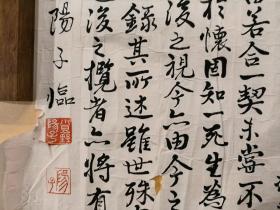 若合一契未嘗不
於懷固知一死生為
後之視今亦由今之
錄其所述雖世殊
後之攬者亦將有
陽子臨